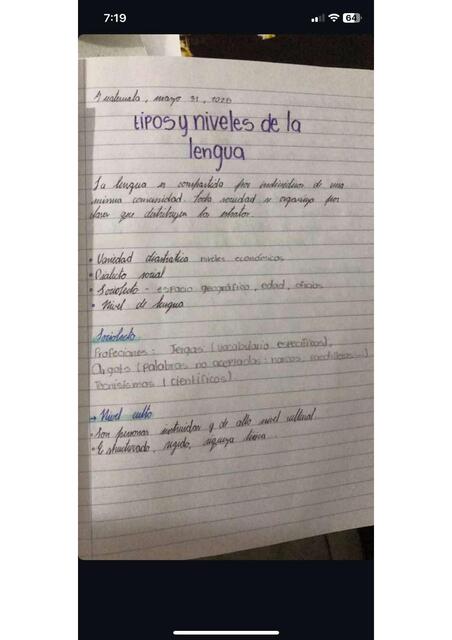 7:19
64
Guatemala, mayo 31, 2026
tipos y niveles de la
lengua
La lengua es compartida por individuos de una
misma comunidad. Toda sociedad se organiza por
clases que distribuyen los estratos.
• Variedad diastratica niveles económicos
• Dialecto social
• Sociolecto - espacio geográfico, edad, oficios
• Nivel de lengua
Sociolecto
Profeciones: Jergas (vocabulario específicos),
Argots (palabras no aceptadas: narcos, pandilleros...)
Tecnisismos (científicas)
→ Nivel culto
• Son personas instruidas y de alto nivel cultural
• Estructurado, rígido, riqueza